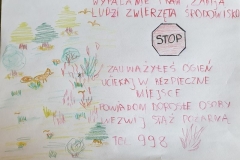 WYPALANIE TRAW ZABIJA
LUDZI ZWIERZĘTA ŚRODOWISKO
STOP
ZAUWAŻYŁEŚ OGIEŃ
UCIEKAJ W BEZPIECZNE
MIEJSCE
POWIADOM DOROSŁE OSOBY
WEZWIJ STRAŻ POŻARNĄ
TEL 998